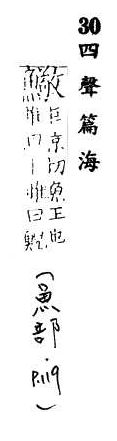 30 四聲篇海
巨京切魚王也
雄曰丨雌曰鯢
(魚部．P.119)